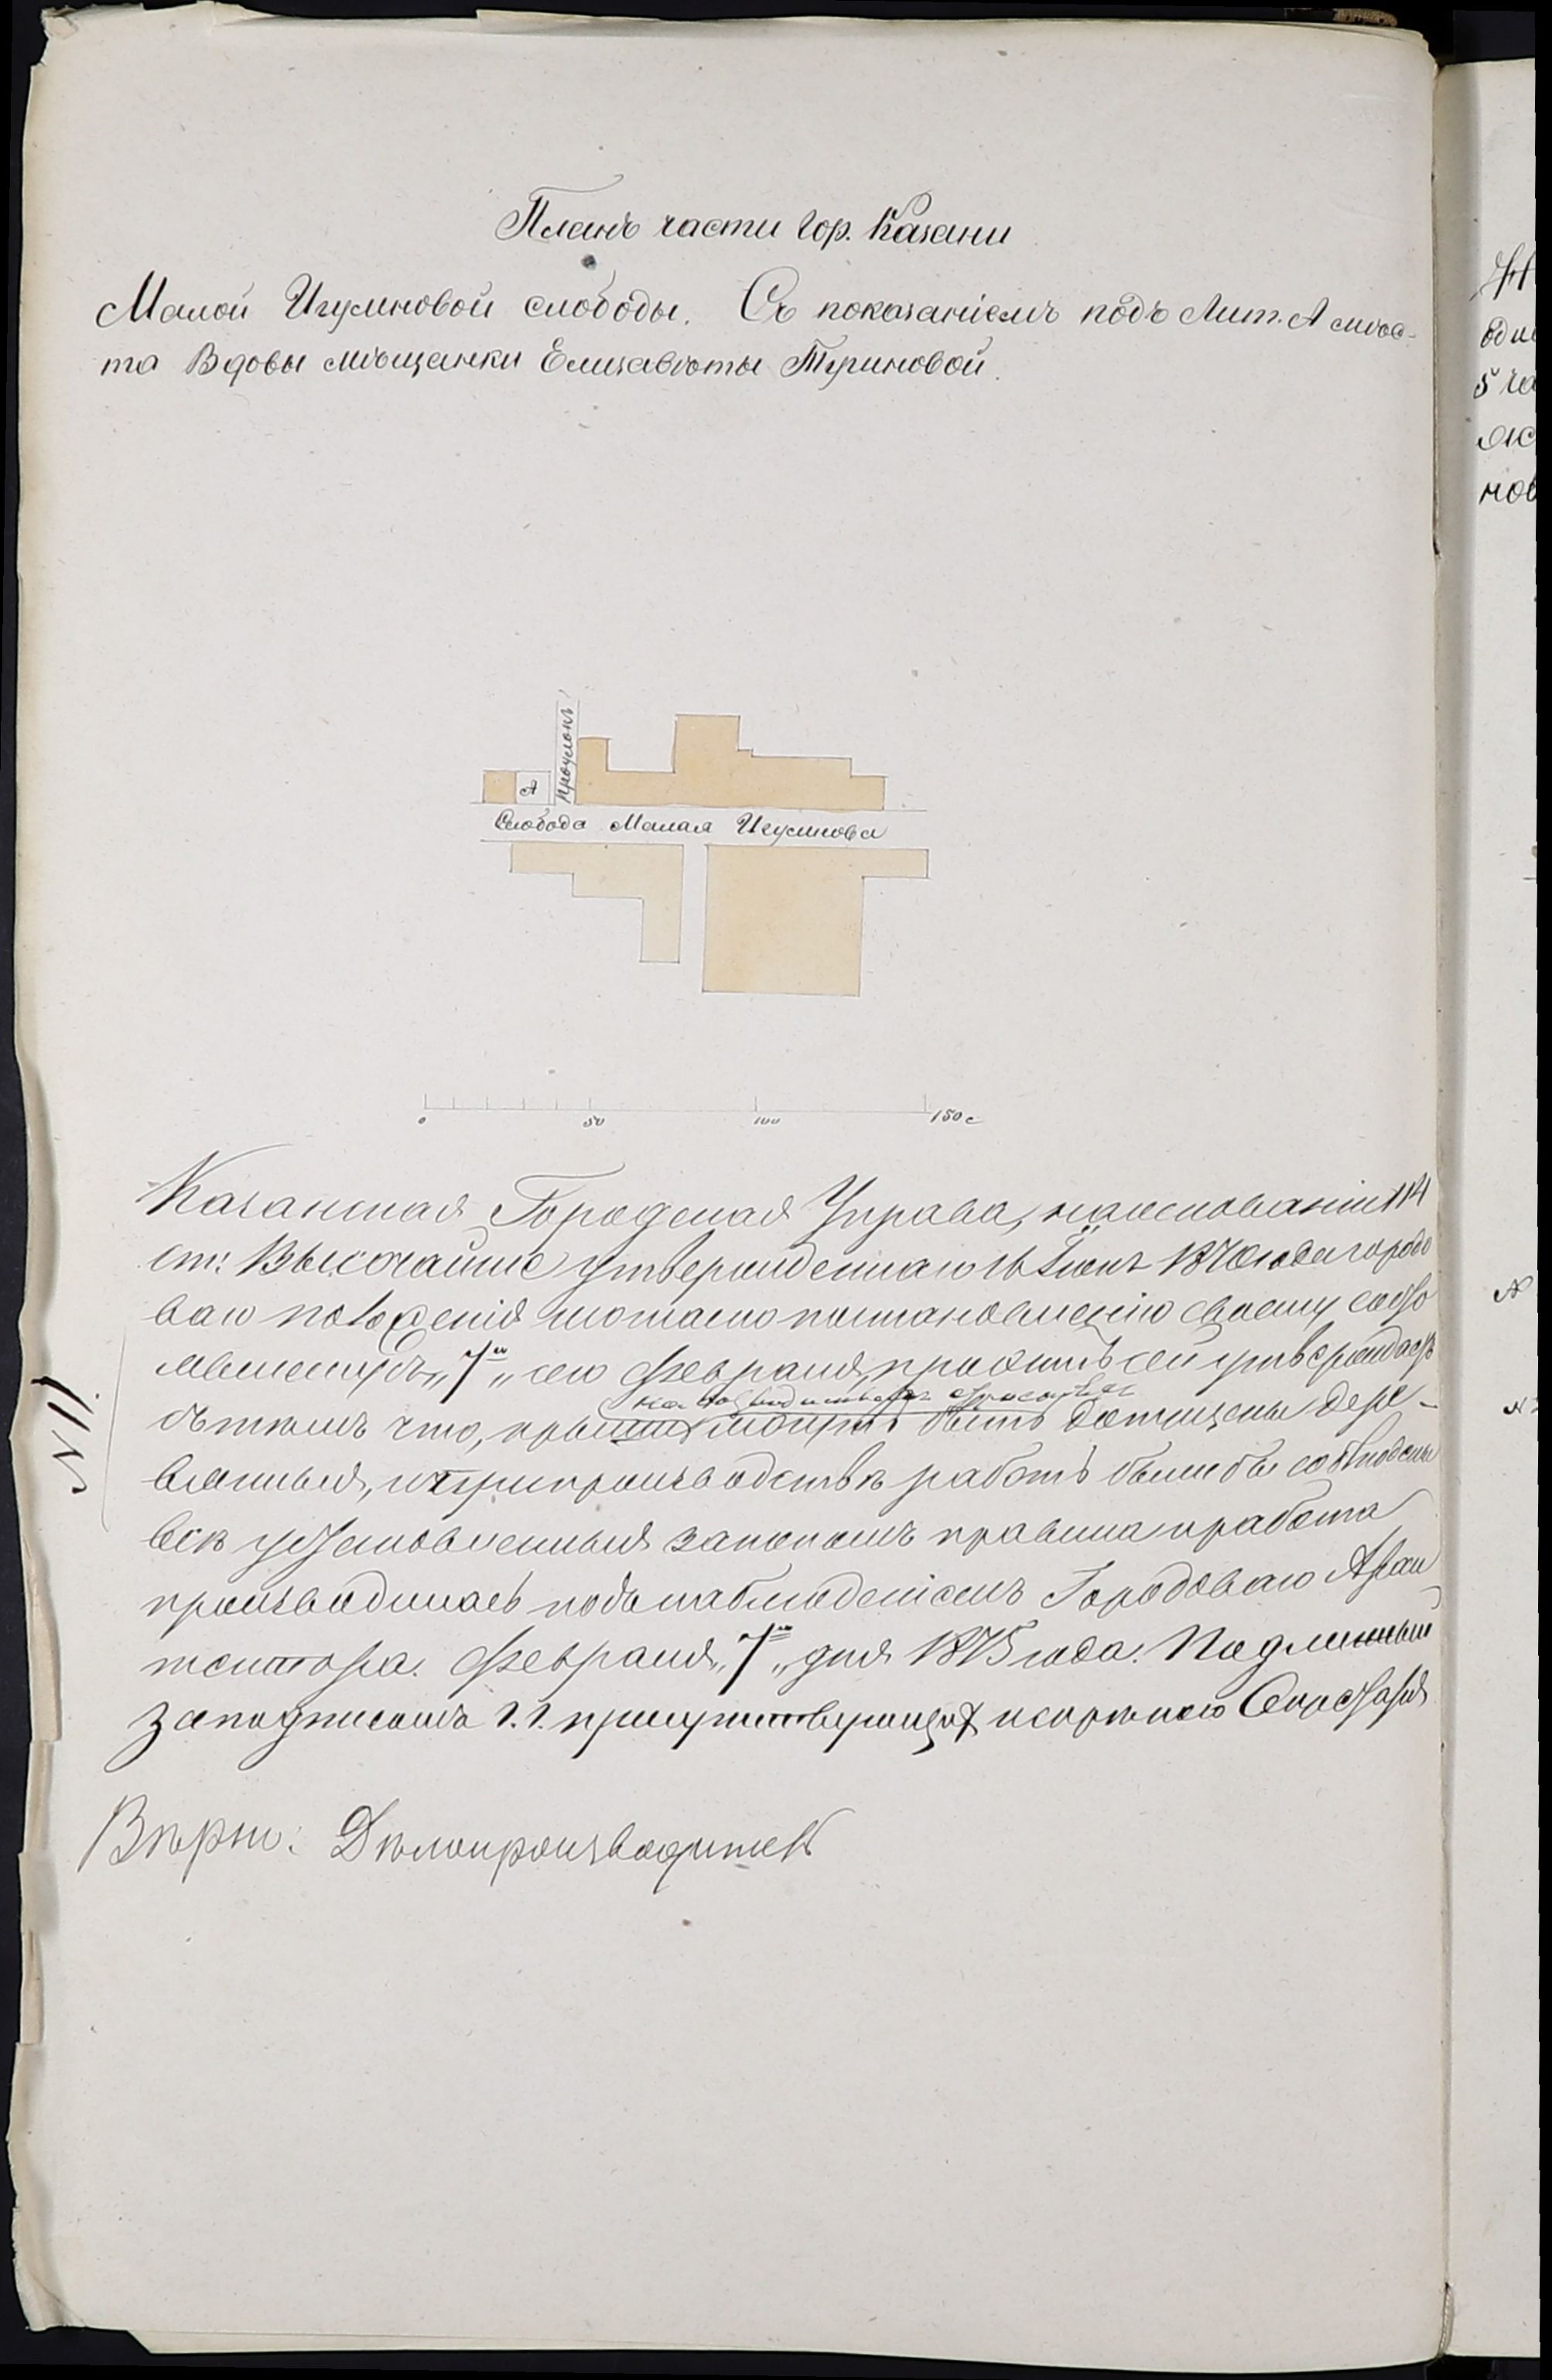 Планъ части гор. Казани
Малой Игумновой слободы. Съ показаніемъ подъ Лит. А мѣс-
та Вдовы мѣщанки Елизаветы Туриновой.
проулокъ
А
Слобода Малая Игумнова
0 50 100 150 с
Казанская Городская Управа, на основаніи 114
ст: Высочайше утвержденнаго 16 Іюня 1870 года городо
ваго положенія и согласно постановленію своему состо
явшемуся „7го„ сего Февраля, проэктъ сей утверждаетъ
съ тѣмъ что, на возводимыхъ
крыши могутъ быть допущены дере-
вянныя, и при производствѣ работъ были бы соблюдены
всѣ установленныя закономъ правила и работа
производилась подъ наблюденіемъ Городоваго Архи
тектора. Февраля „7го„ дня 1875 года. Подлинный
за подписомъ г.г. присутствующихъ и скрѣпою Секретаря
Вѣрно: Дѣлопроизводитель
№ 11.